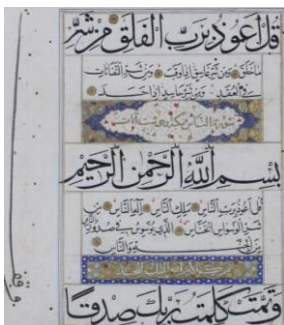 قل اعوذ برب الفلق من شر
ما خلق ومن شر غاسق اذا وقب ومن شر النفاثات
في العقد ومن شر حاسد اذا حسد
سورة الناس
بسم الله الرحمن الرحيم
قل اعوذ برب الناس ملك الناس اله الناس من
شر الوسواس الخناس الذي يوسوس في صدور الناس
من الجنة والناس
وتمت كلمت ربك صدقا